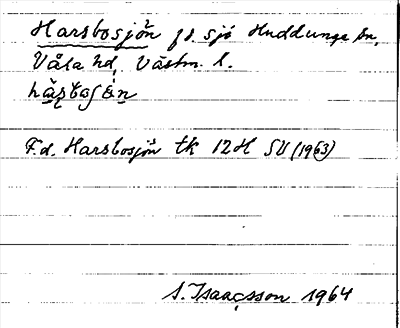 Harsbosjön f.d. sjö Huddunge sn,
Våla hd, Västm. l.
F.d. Harsbosjön tk 12H SV (1963)
S. Isaacsson 1964